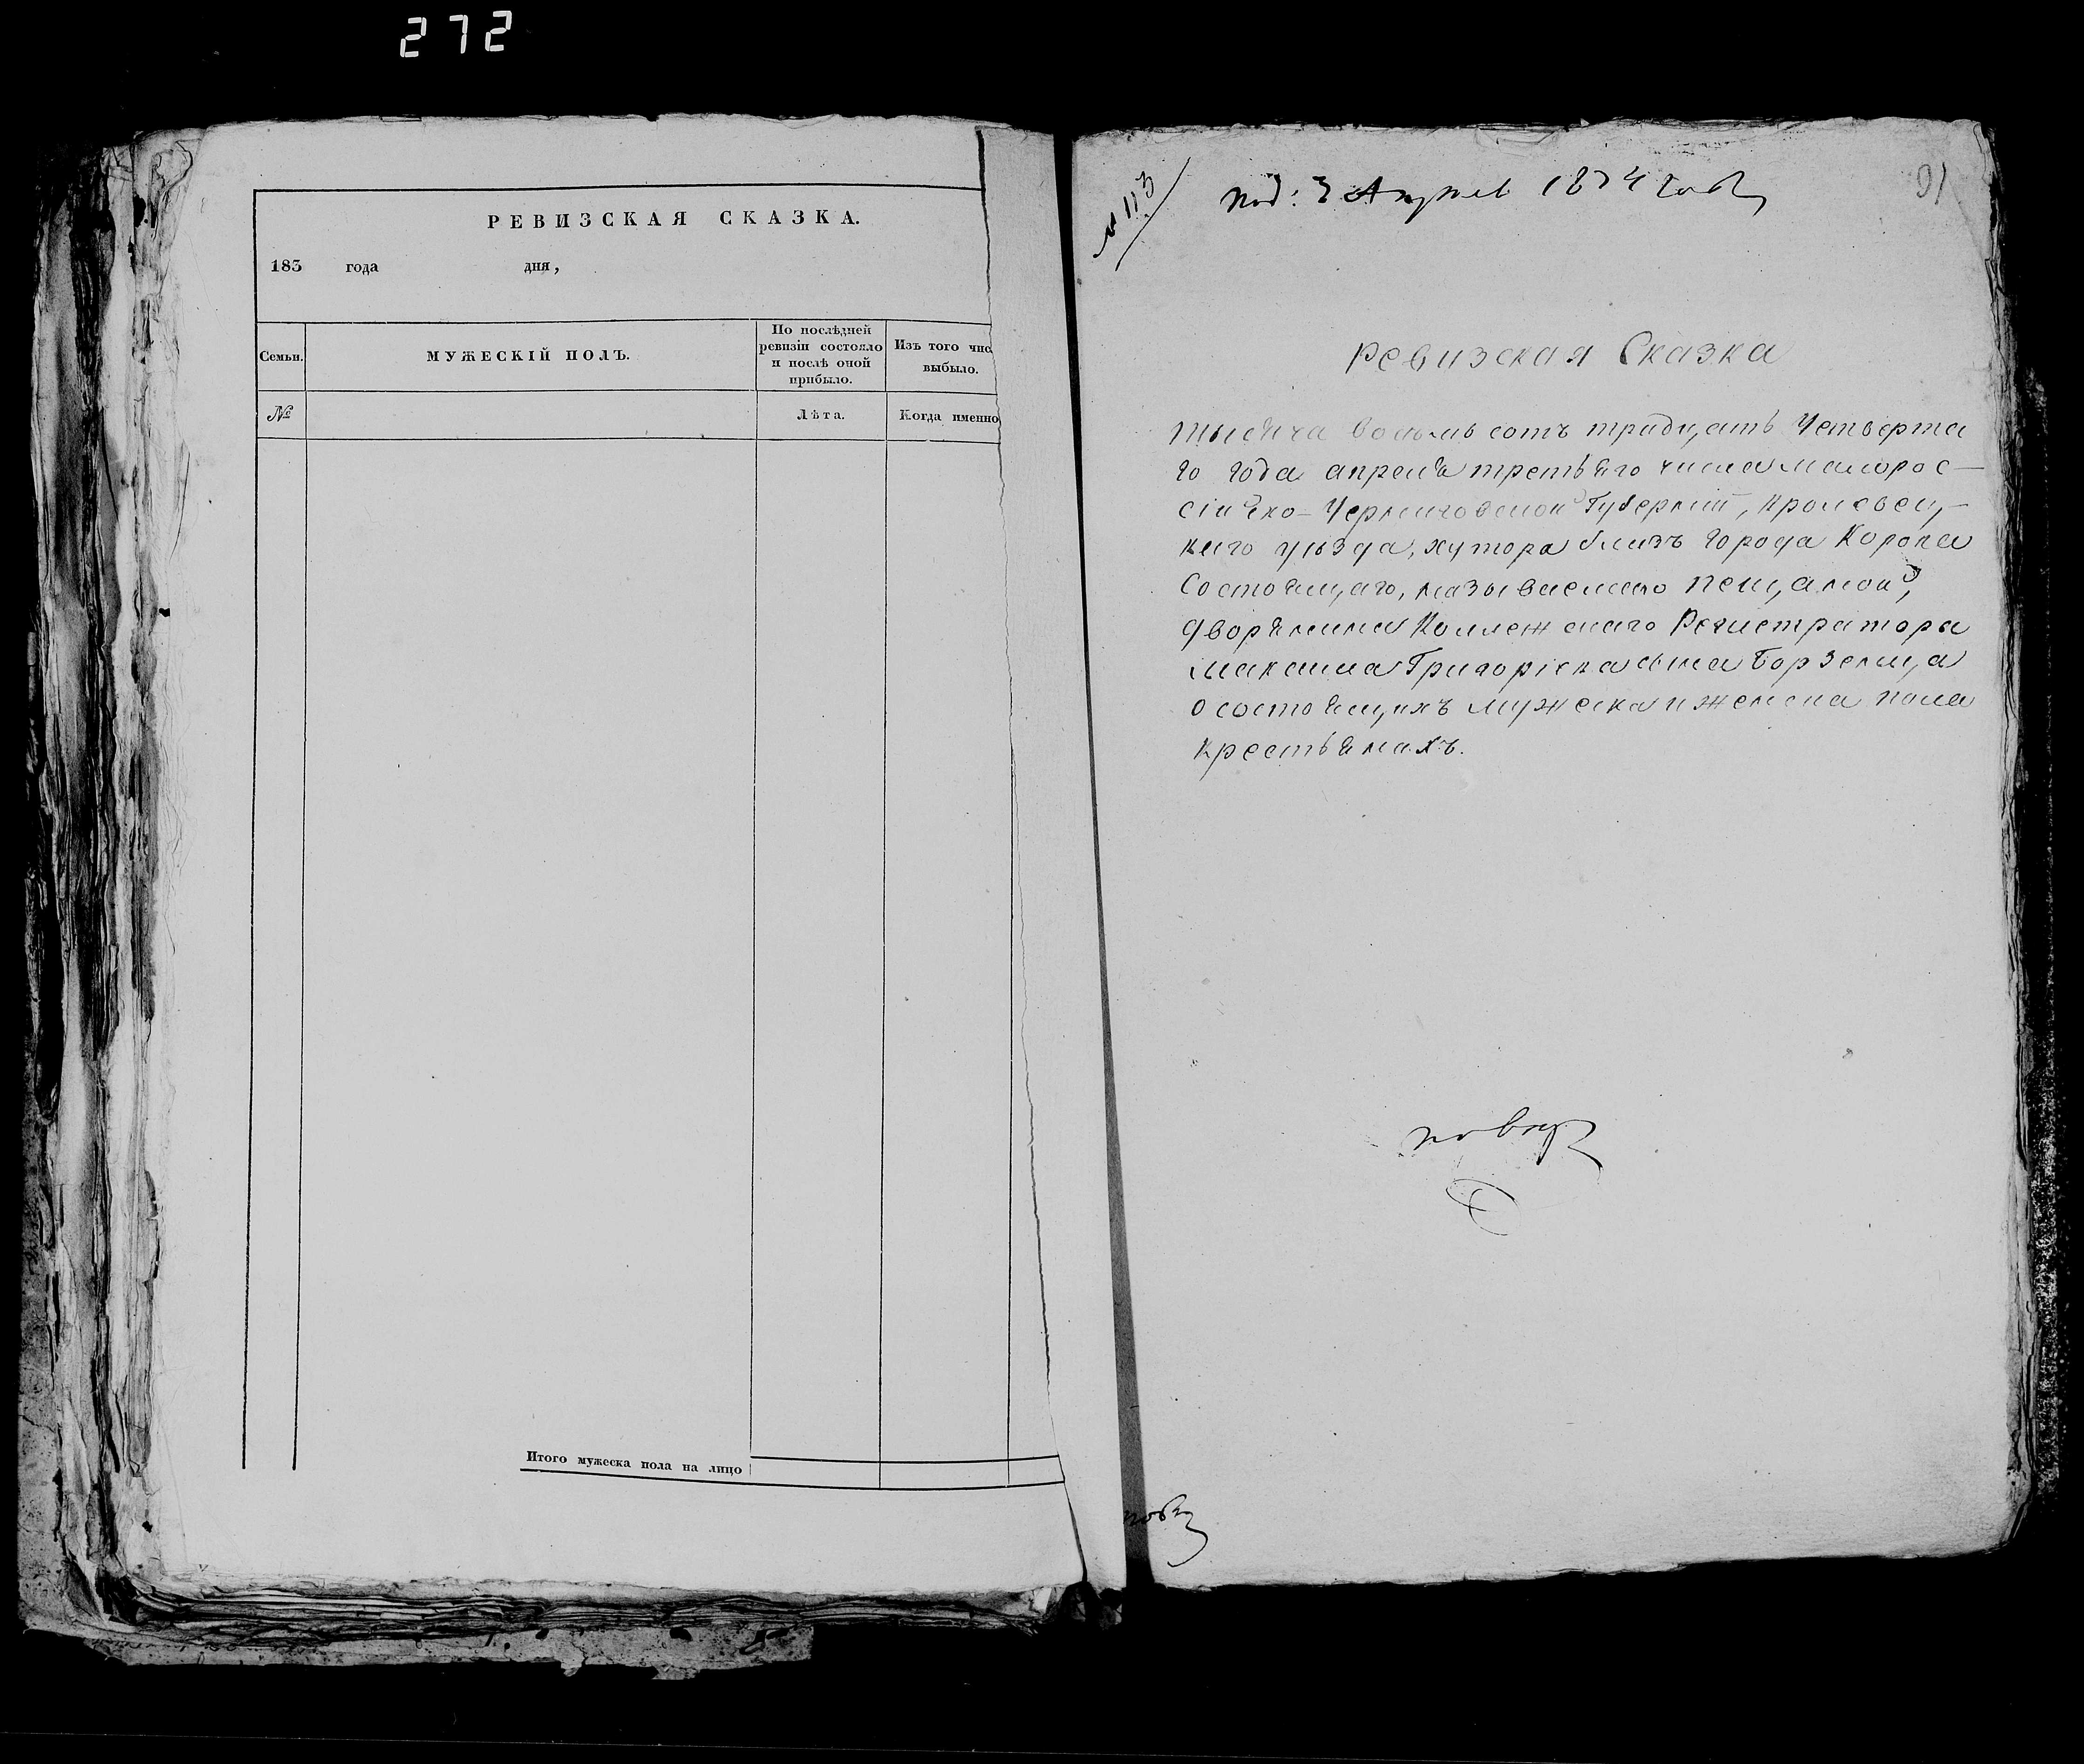 272
РЕВИЗСКАЯ СКАЗКА.
183 года дня,
Семьи.
МУЖЕСКІЙ ПОЛЪ.
По послѣдней
ревизіи состояло
и послѣ оной
прибыло.
Изъ того чис
выбыло.
№
Лѣта.
Когда именно
Итого мужеска пола на лицо
№ 113
под: 3 Апреля 1834 года
91
Ревизская Сказка
тысяча восемь сотъ тридцать Четверта
го года апреля третьяго числа малорос–
сійско–Черниговской Губерніи, кролевец,–
каго уѣзда, хутора близъ города Коропа
Состоящаго, называемаго пещаной,
дворянина Коллежскаго Регистратора
максима Григоріева сына Борзенца
о состоящихъ мужеска и женска пола
крестьянахъ.